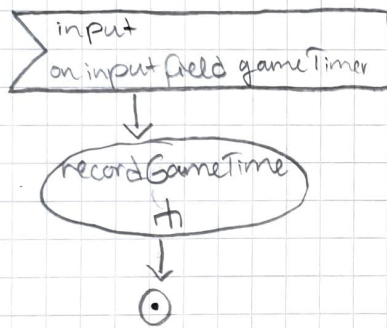 input
on input field gameTimer
recordGameTime